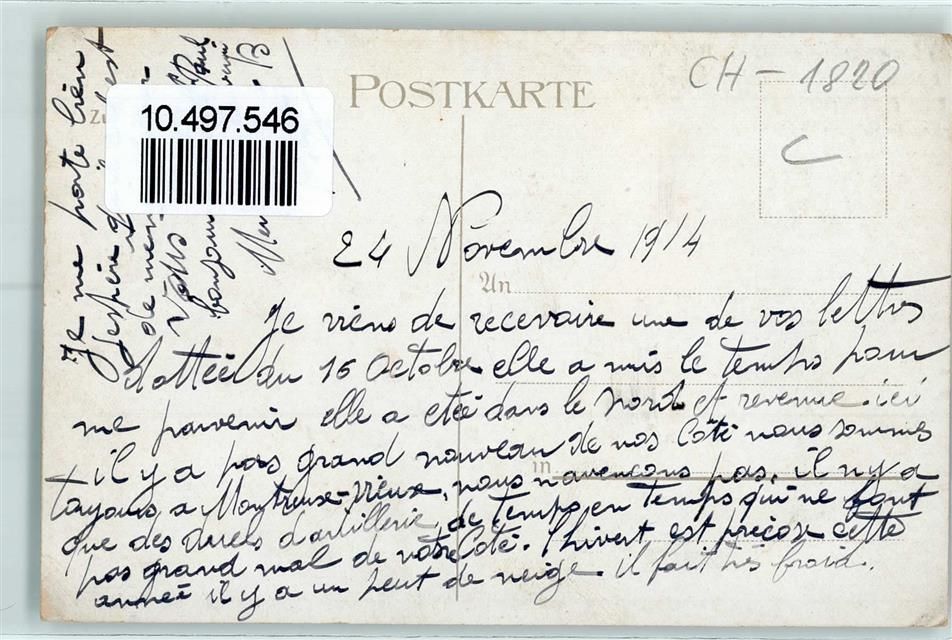 POSTKARTE
CH - 1820
10.497.546
24 Novembre 1914
An
Je viens de recevaire une de vos lettres
dattée du 16 Octobre elle a mis le temps pour
me parvenir elle a etée dans le Nord et revenue ici
il y a pas grand nouveau de nos Coté nous sommes
toujours a Montreux-Vieux, nous n'avencons pas, il n'y a
in
que des duels d'artillerie, de temps en temps qui ne font
pas grand mal de notre Coté. l'hivert est précose cette
année il y a un peut de neige. il fait très froid.
Je me porte bien
J'espère est
de mem
Vous Paul